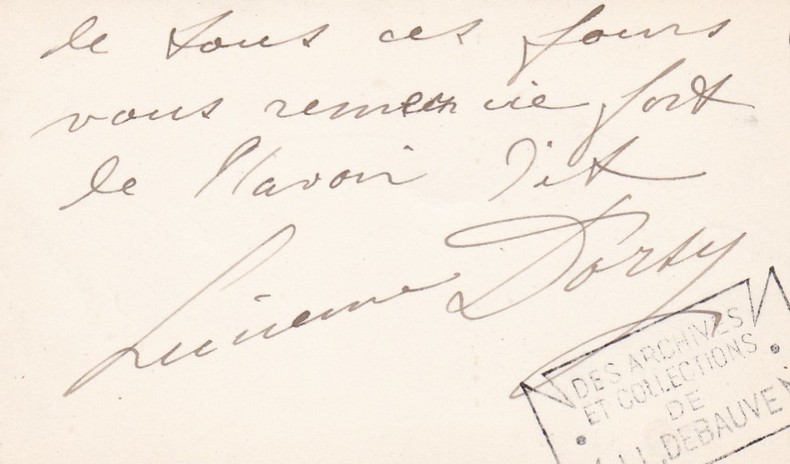 de tous ces jours
vous remercie fort
de l'avoir dit
Lucienne Dorsy
DES ARCHIVES
ET COLLECTIONS
DE
J.L. DEBAUVE